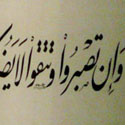 وَإِن تَصْبِرُوا وَتَتَّقُوا لَا يَضُ